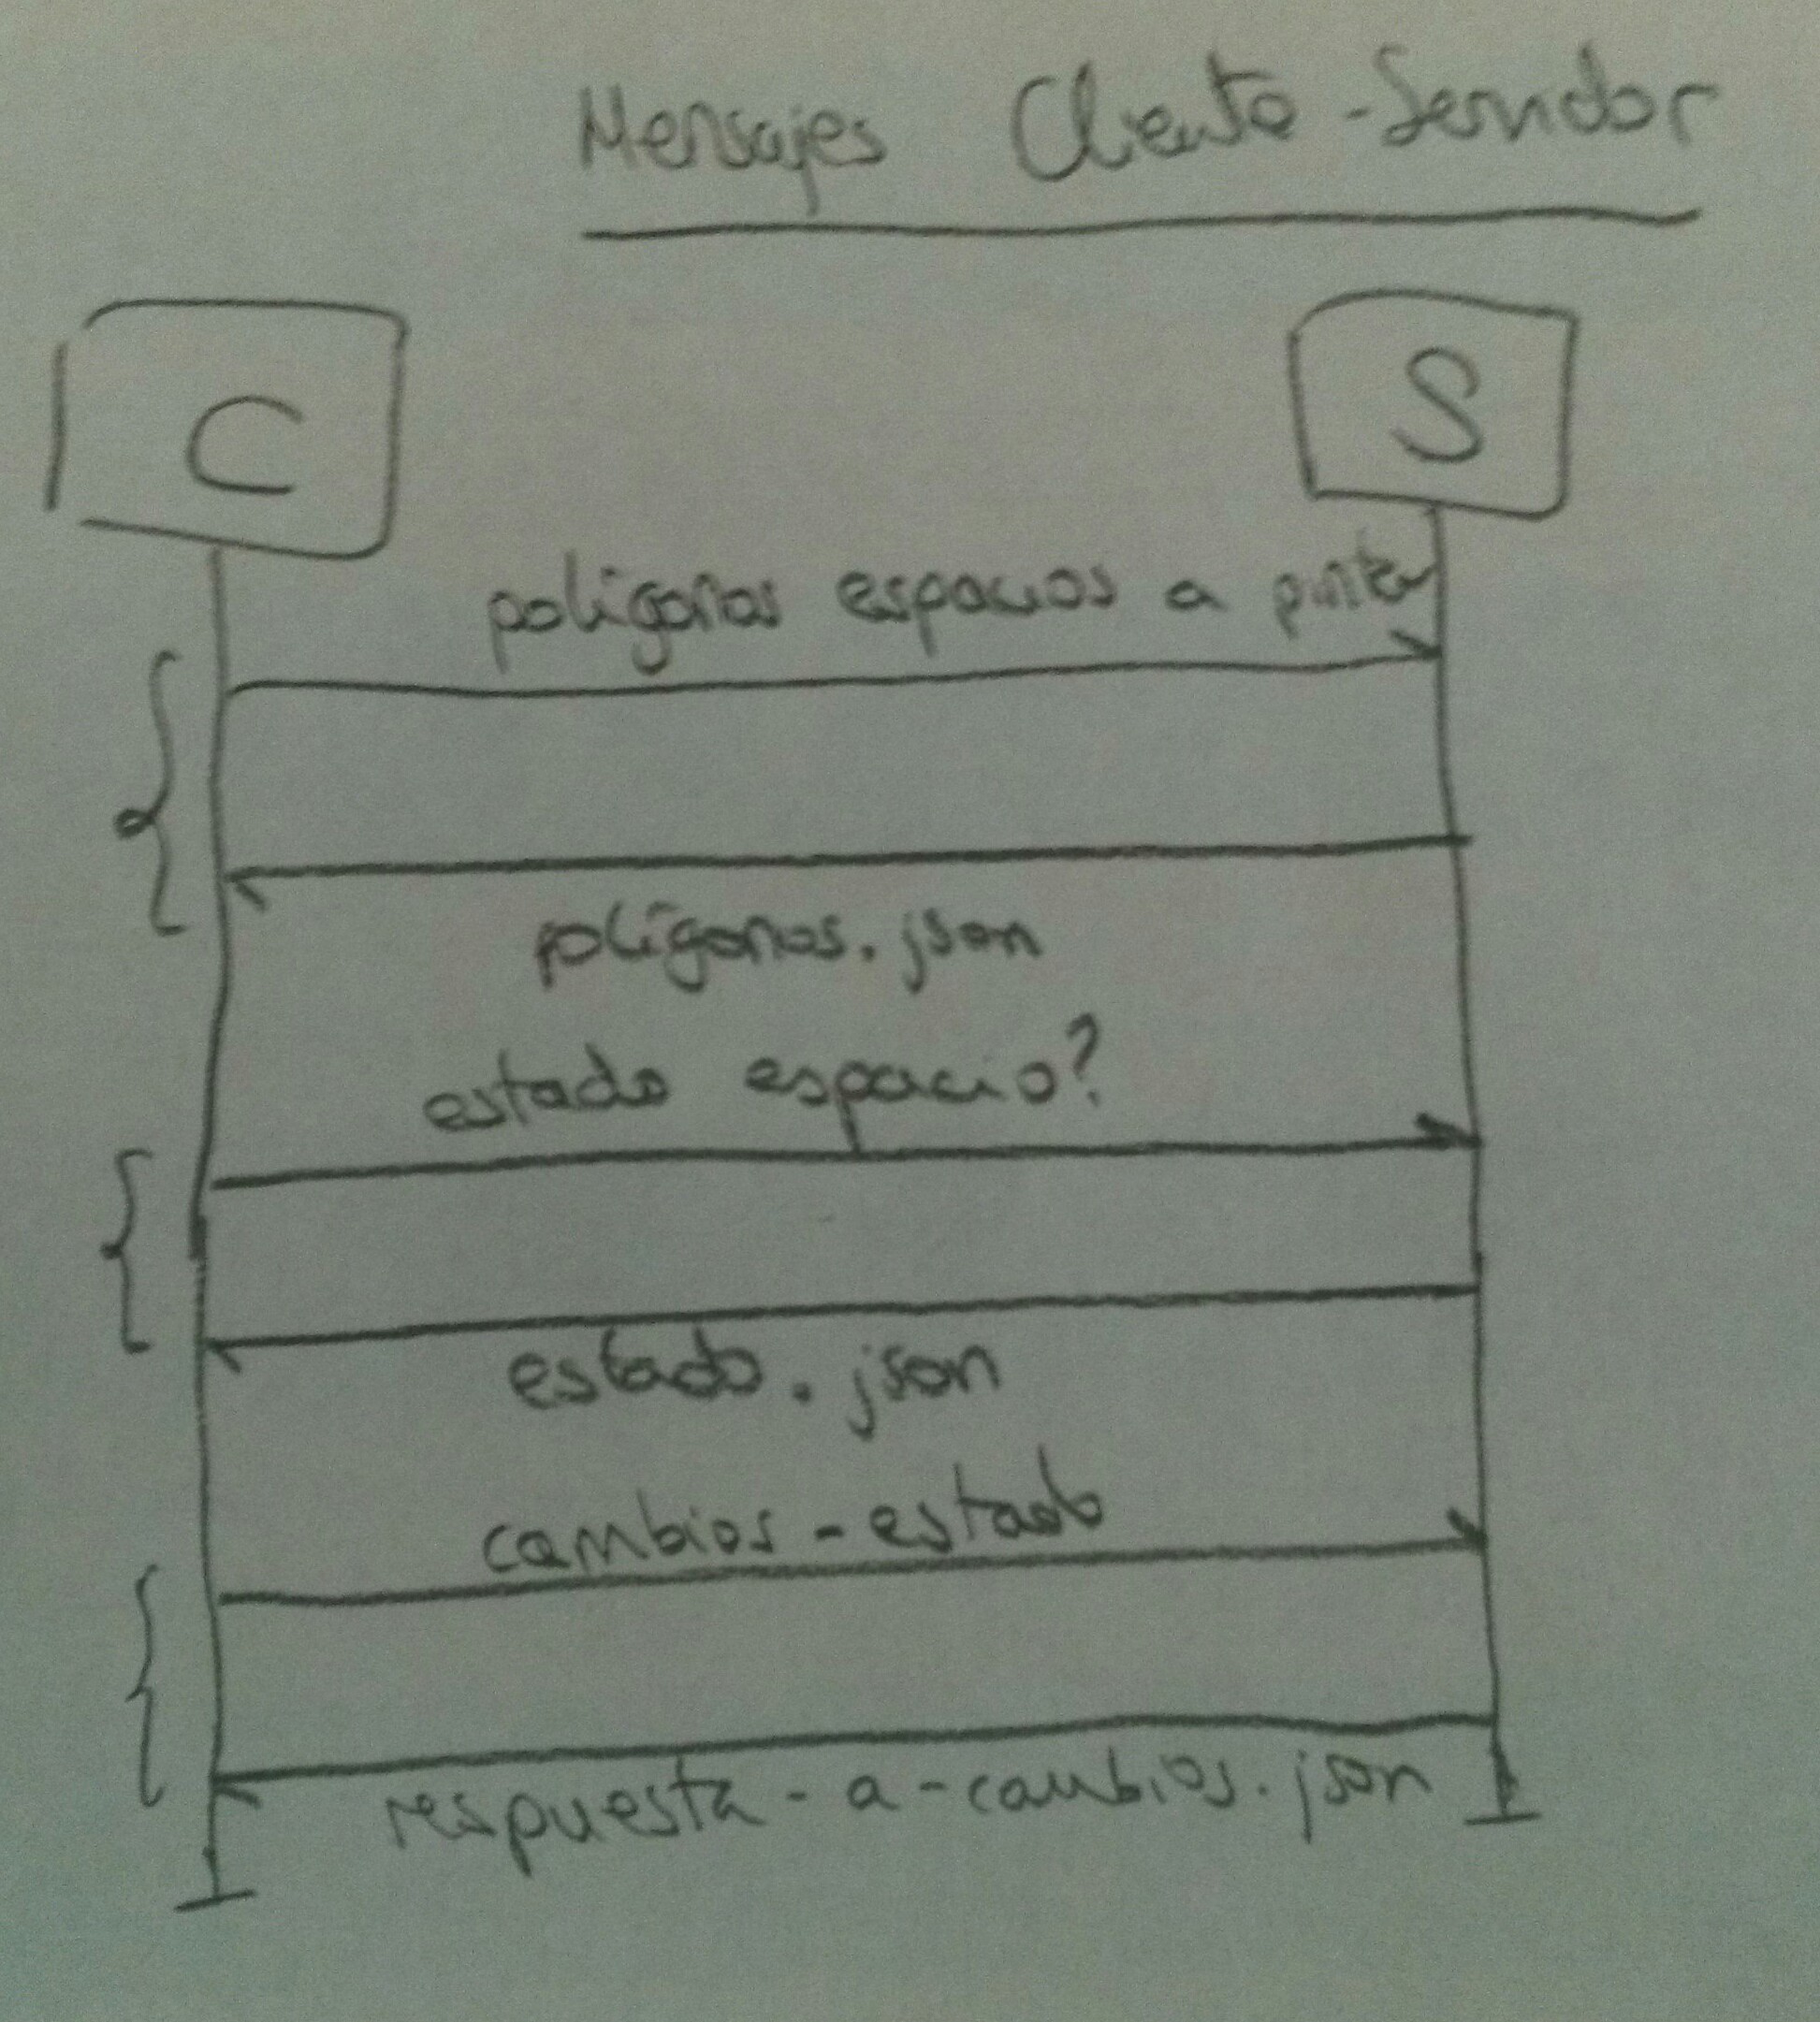 Mensajes Cliente-Servidor
C
S
polígonos espacios a pintar
polígonos.json
estado espacio?
estado.json
cambios-estado
respuesta-a-cambios.json